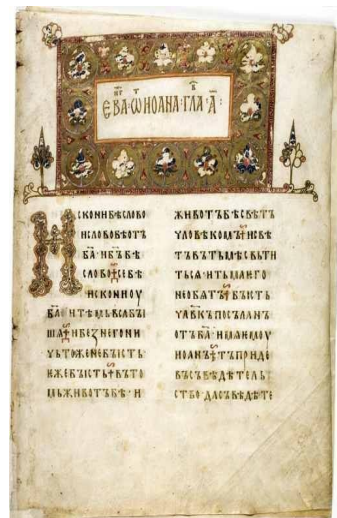 ЕВⷢ҇А · Ѡⷮ ИОАНА · ГЛАⷡ · А҃ :
ИСКОНИ БѢ СЛОВО
И СЛОВО БѢ ОТЪ
Б҃А · И Б҃Ъ БѢ
СЛОВО · СЕ БѢ
ИСКОНИ ОУ
Б҃А · И ТѢМЬ ВЬСА БЫ
ША · И БЕЗ НЕГО НИ
ЧЬТОЖЕ НЕ БЫСТЬ
ѤЖЕ БЫСТЬ · ВЪ ТО
МЬ ЖИВОТЪ БѢ · И
ЖИВОТЪ БѢ СВѢТЪ
ЧЛОВѢКОМЪ · И СВѢ
ТЪ ВЪ ТЬМѢ СВЬТИ
ТЬСѦ · И ТЬМА ѤГО
НЕ ОБѦТЪ · БЫСТЬ
ЧЛ҃ВКЪ ПОСЪЛАНЪ
ОТЪ Б҃А · ИМѦ ѤМОУ
ИОАНЪ · ТЪ ПРИДЕ
ВЪ СЪВѢДѢТЕЛЬ
СТВО · ДА СЪВѢДѢТЕ